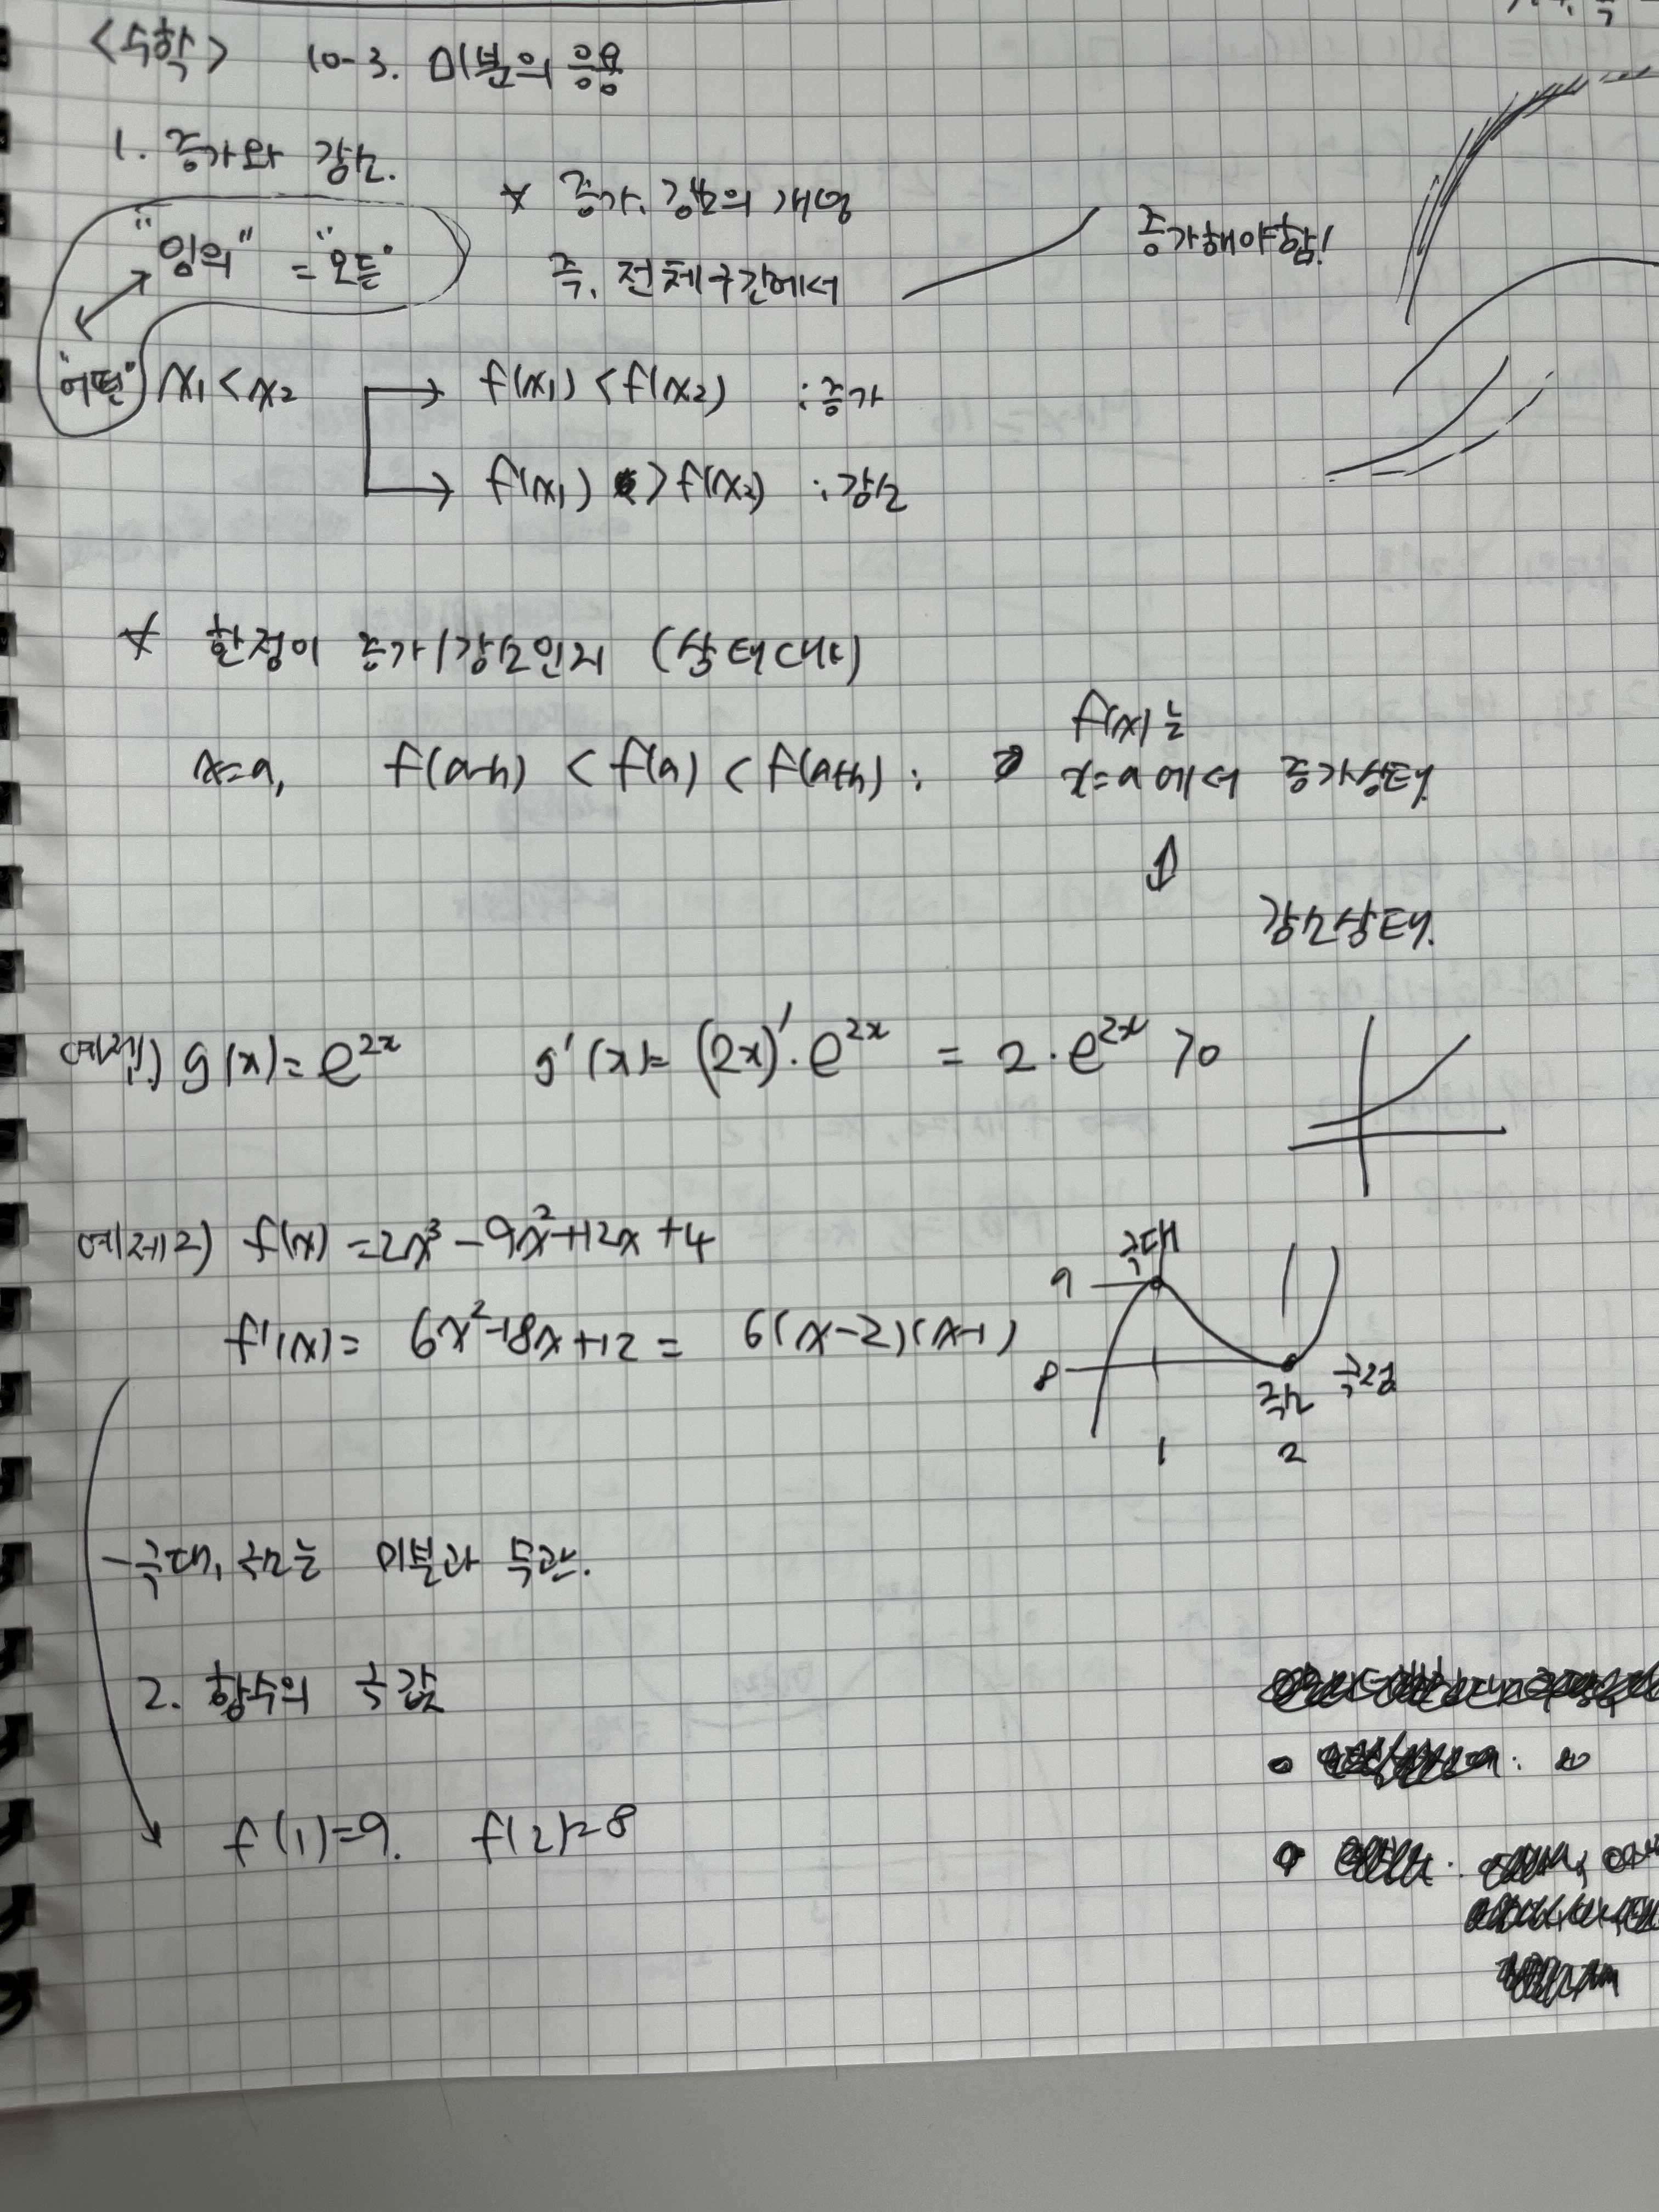 <수학> 10-3. 미분의 응용
1. 증가와 감소.
"임의" = "모든"
"어떤"
* 증가, 감소의 개념
즉, 전체구간에서
증가해야함!
x₁ < x₂
f(x₁) < f(x₂) : 증가
f(x₁) > f(x₂) : 감소
* 한점이 증가/감소인지 (상태)
x=a, f(a-h) < f(a) < f(a+h) :
f(x)는
x=a에서 증가상태.
⇕
감소상태.
예제1) g(x) = e^{2x} g'(x) = (2x)'·e^{2x} = 2·e^{2x} >0
예제2) f(x) = 2x³ - 9x² + 12x + 4
f'(x) = 6x² - 18x + 12 = 6(x-2)(x-1)
극대
9
8
극소
1 2
- 극대, 극소는 미분과 무관.
2. 함수의 극값
f(1)=9. f(2)=8